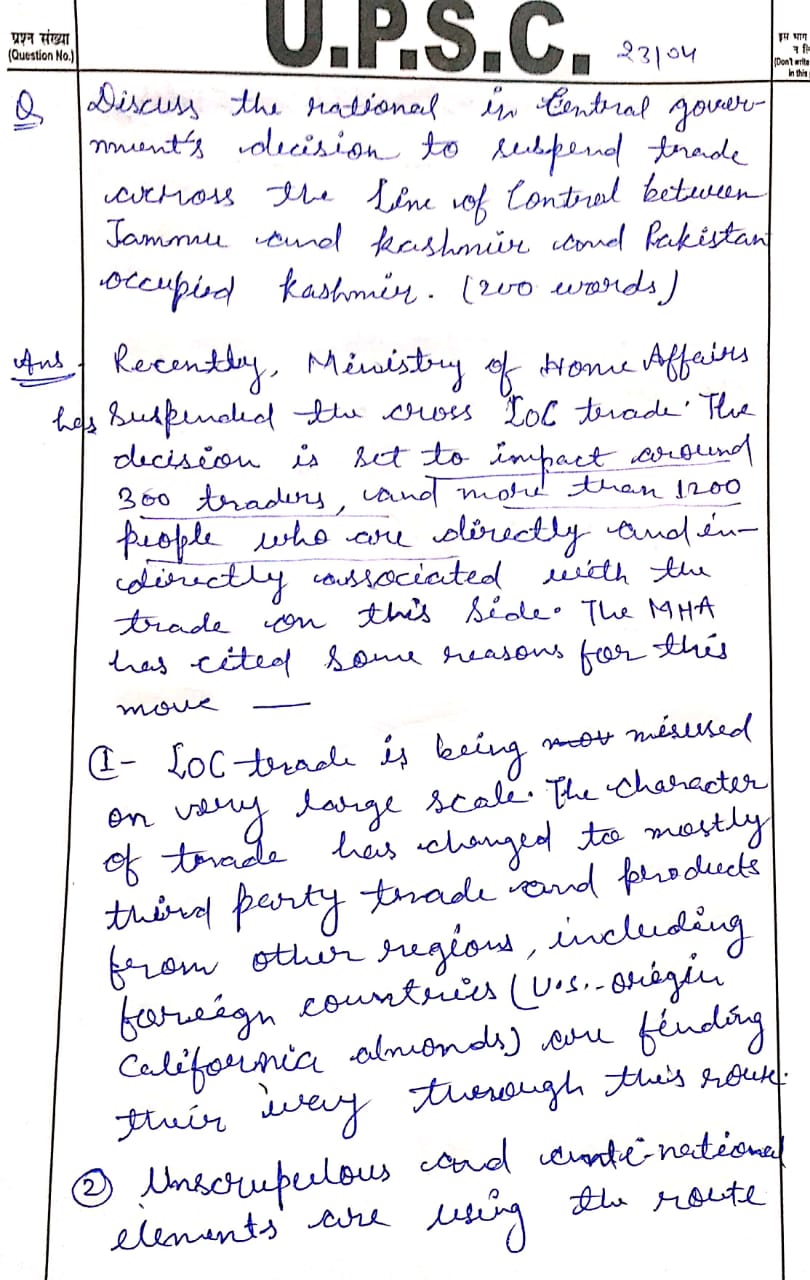 प्रश्न संख्या
(Question No.)
U.P.S.C.
23/04
इस भाग
(Don't write
in this
Q Discuss the rational in Central gover-
nment's decision to suspend trade
across the Line of Control between
Jammu and Kashmir and Pakistan
occupied Kashmir. (200 words)
Ans - Recently, Ministry of Home Affairs
has suspended the cross LoC trade. The
decision is set to impact around
300 traders, and more than 1200
people who are directly and in-
directly associated with the
trade on this side. The MHA
has cited some reasons for this
move —
①- LOC trade is being misused
on very large scale. The character
of trade has changed to mostly
third party trade and products
from other regions, including
foreign countries (U.S.-origin
California almonds) are finding
their way through this route.
② Unscrupulous and anti-national
elements are using the route